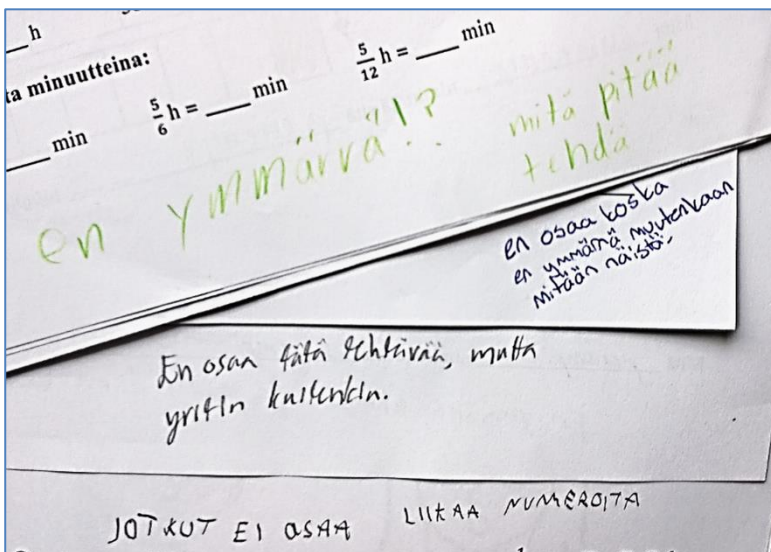 h
ta minuutteina:
min
5/6 h = ____ min
5/12 h = ____ min
en ymmärrä!?
mitä pitää
tehdä
en osaa koska
en ymmärrä muutenkaan
mitään näistä.
En osaa tätä tehtävää, mutta
yritin kuitenkin.
JOTKUT EI OSAA
LIIKAA NUMEROITA